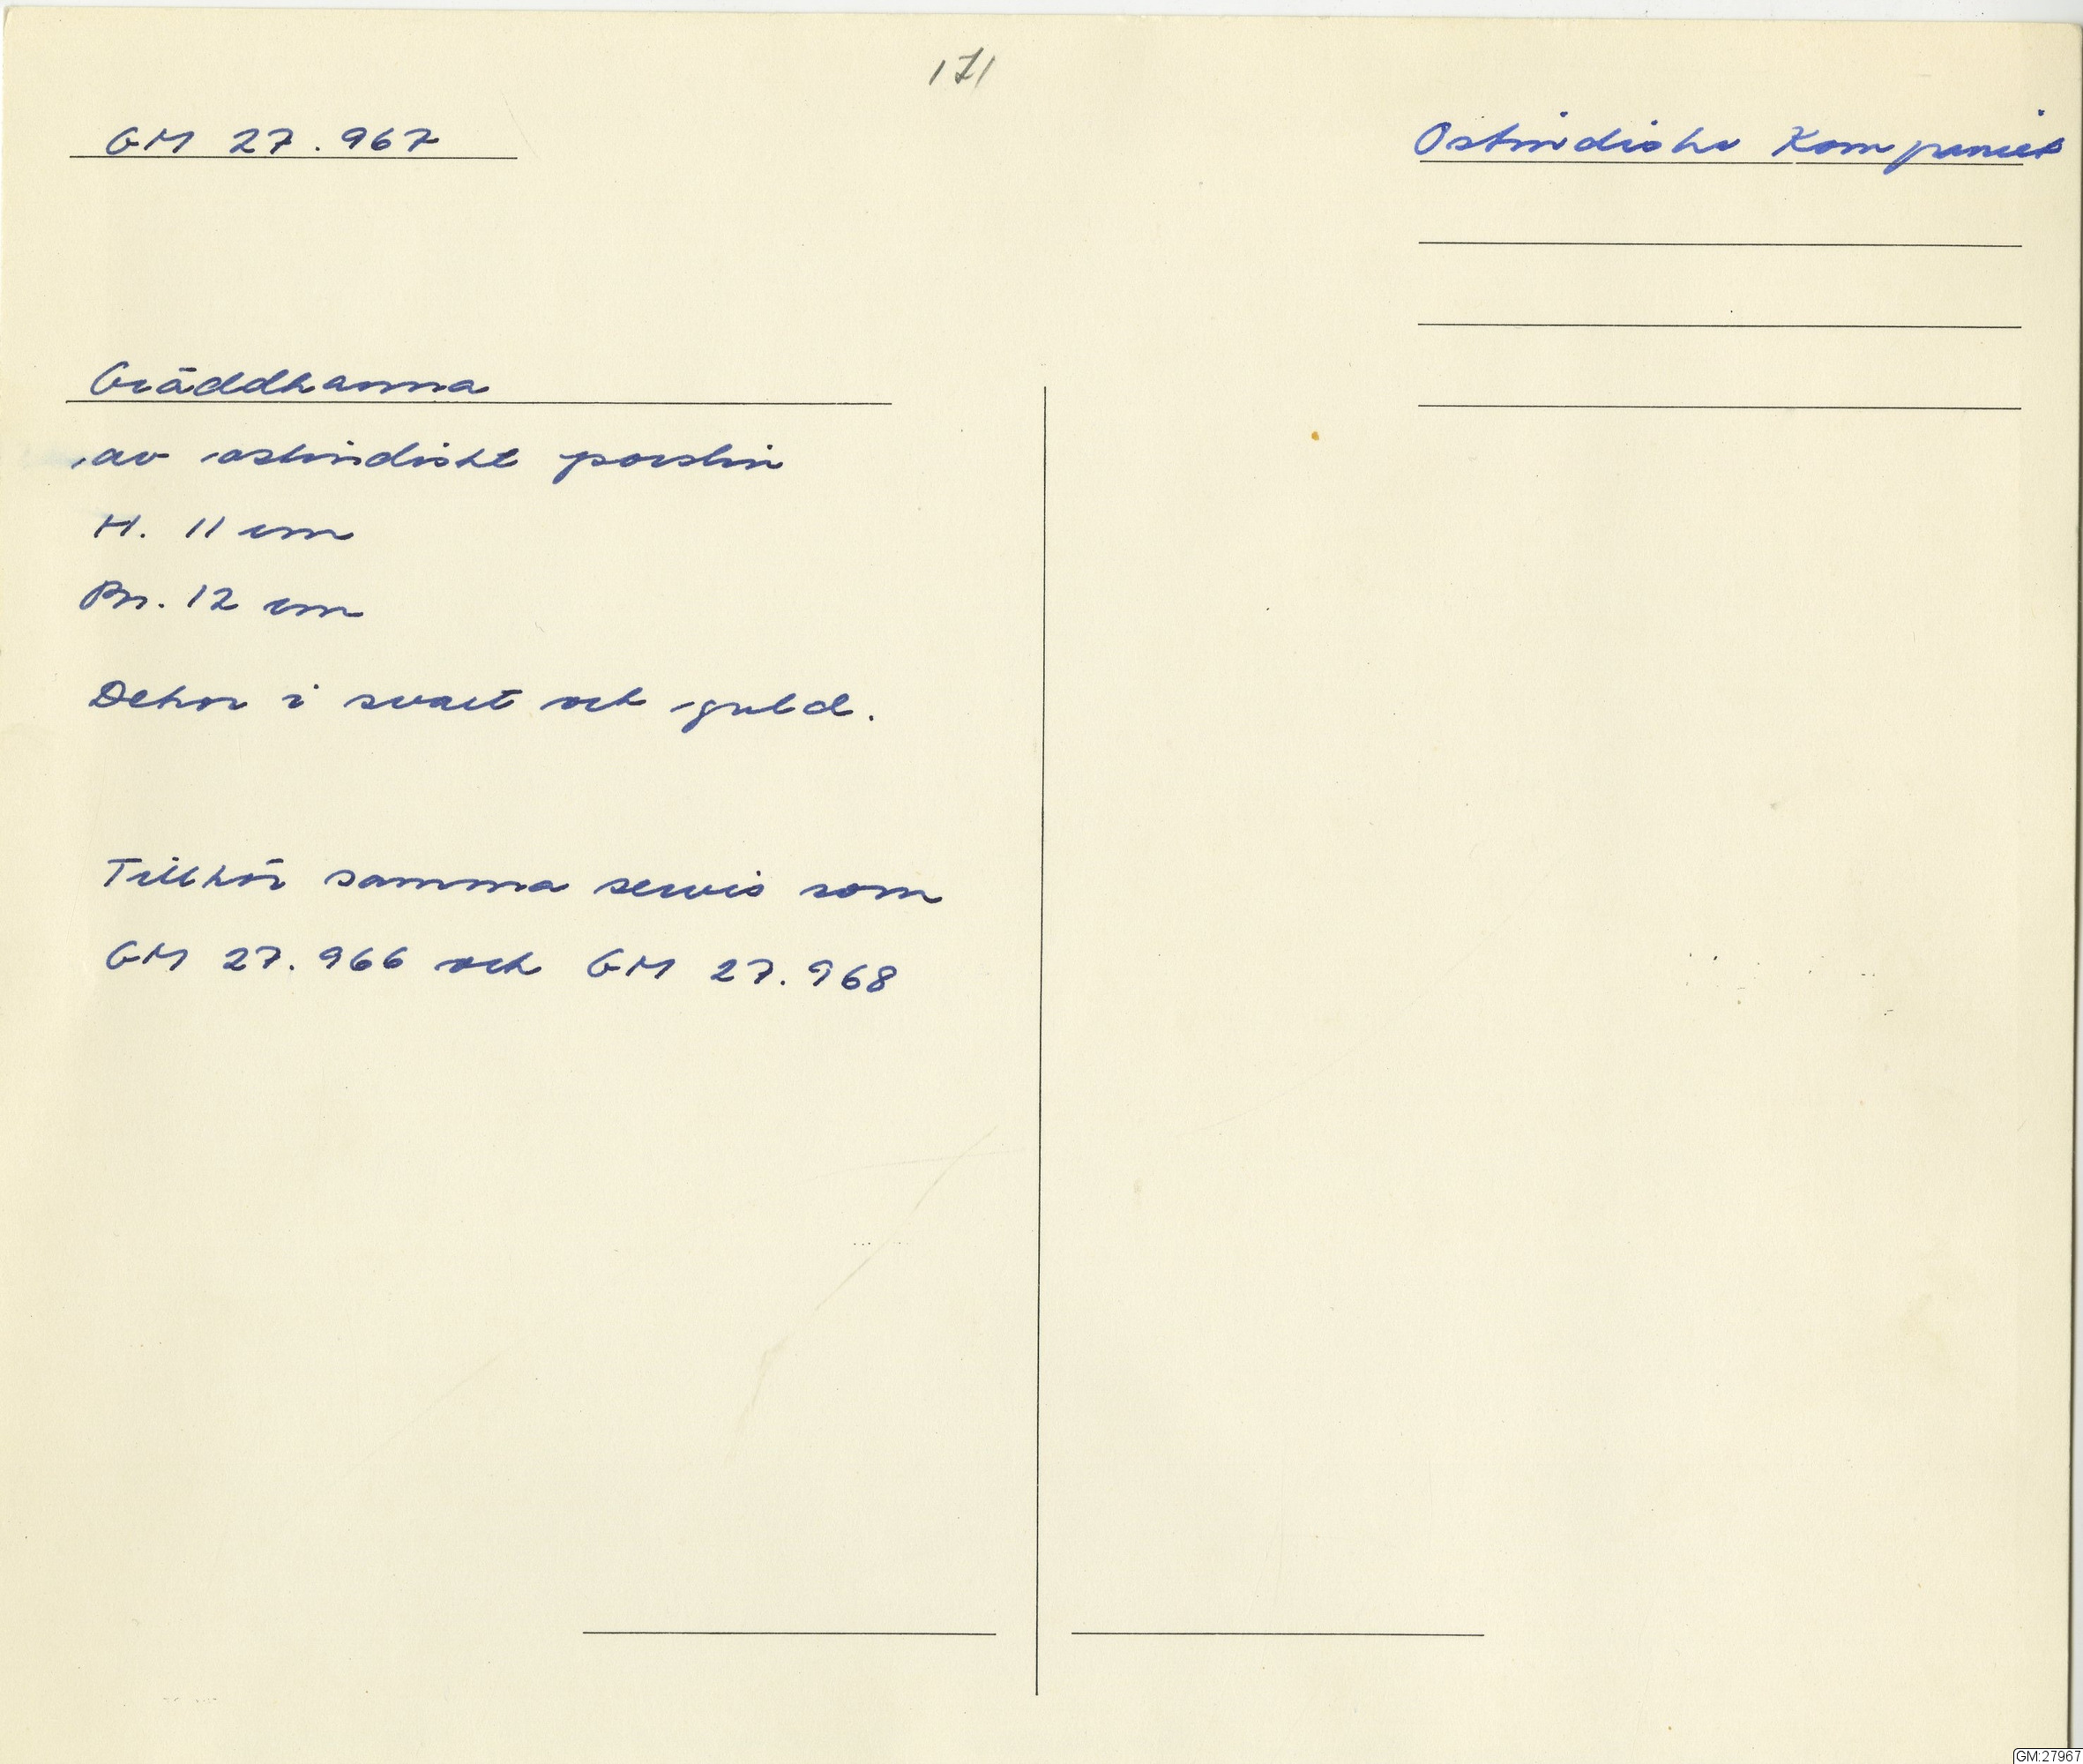 171
GM 27.967
Ostindiska Kompaniet
Gräddkanna
av ostindiskt porslin
H. 11 cm
Br. 12 cm
Dekor i svart och guld.
Tillhör samma servis som
GM 27.966 och GM 27.968
GM:27967